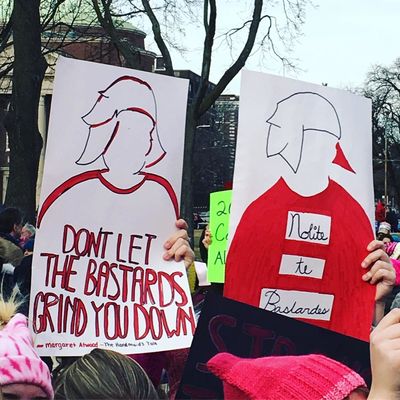 DONT LET
THE BASTARDS
GRIND YOU DOWN
- Margaret Atwood - The Handmaid's Tale
Nolite
te
Bastardes